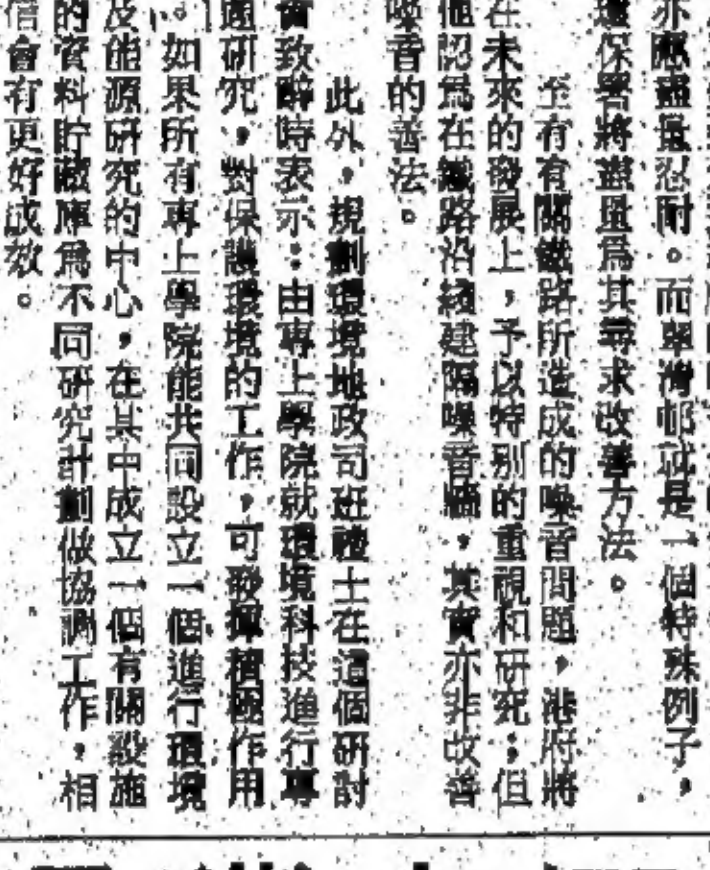 亦應盡量忍耐。而翠灣邨就是一個特殊例子，
環保署將盡量為其尋求改善方法。
至有有關鐵路所造成的噪音問題，港府將
在未來的發展上，予以特别的重視和研究；但
他認為在鐵路沿綫建隔噪音牆，其實亦非改善
噪音的善法。
此外，規劃環境地政司班禮士在這個研討
會致辭時表示：由專上學院就環境科技進行專
題研究，對保護環境的工作，可發揮積極作用
。如果所有專上學院能共同設立一個進行環境
及能源研究的中心，在其中成立一個有關設施
的資料貯藏庫為不同研究計劃做協調工作，相
信會有更好成效。